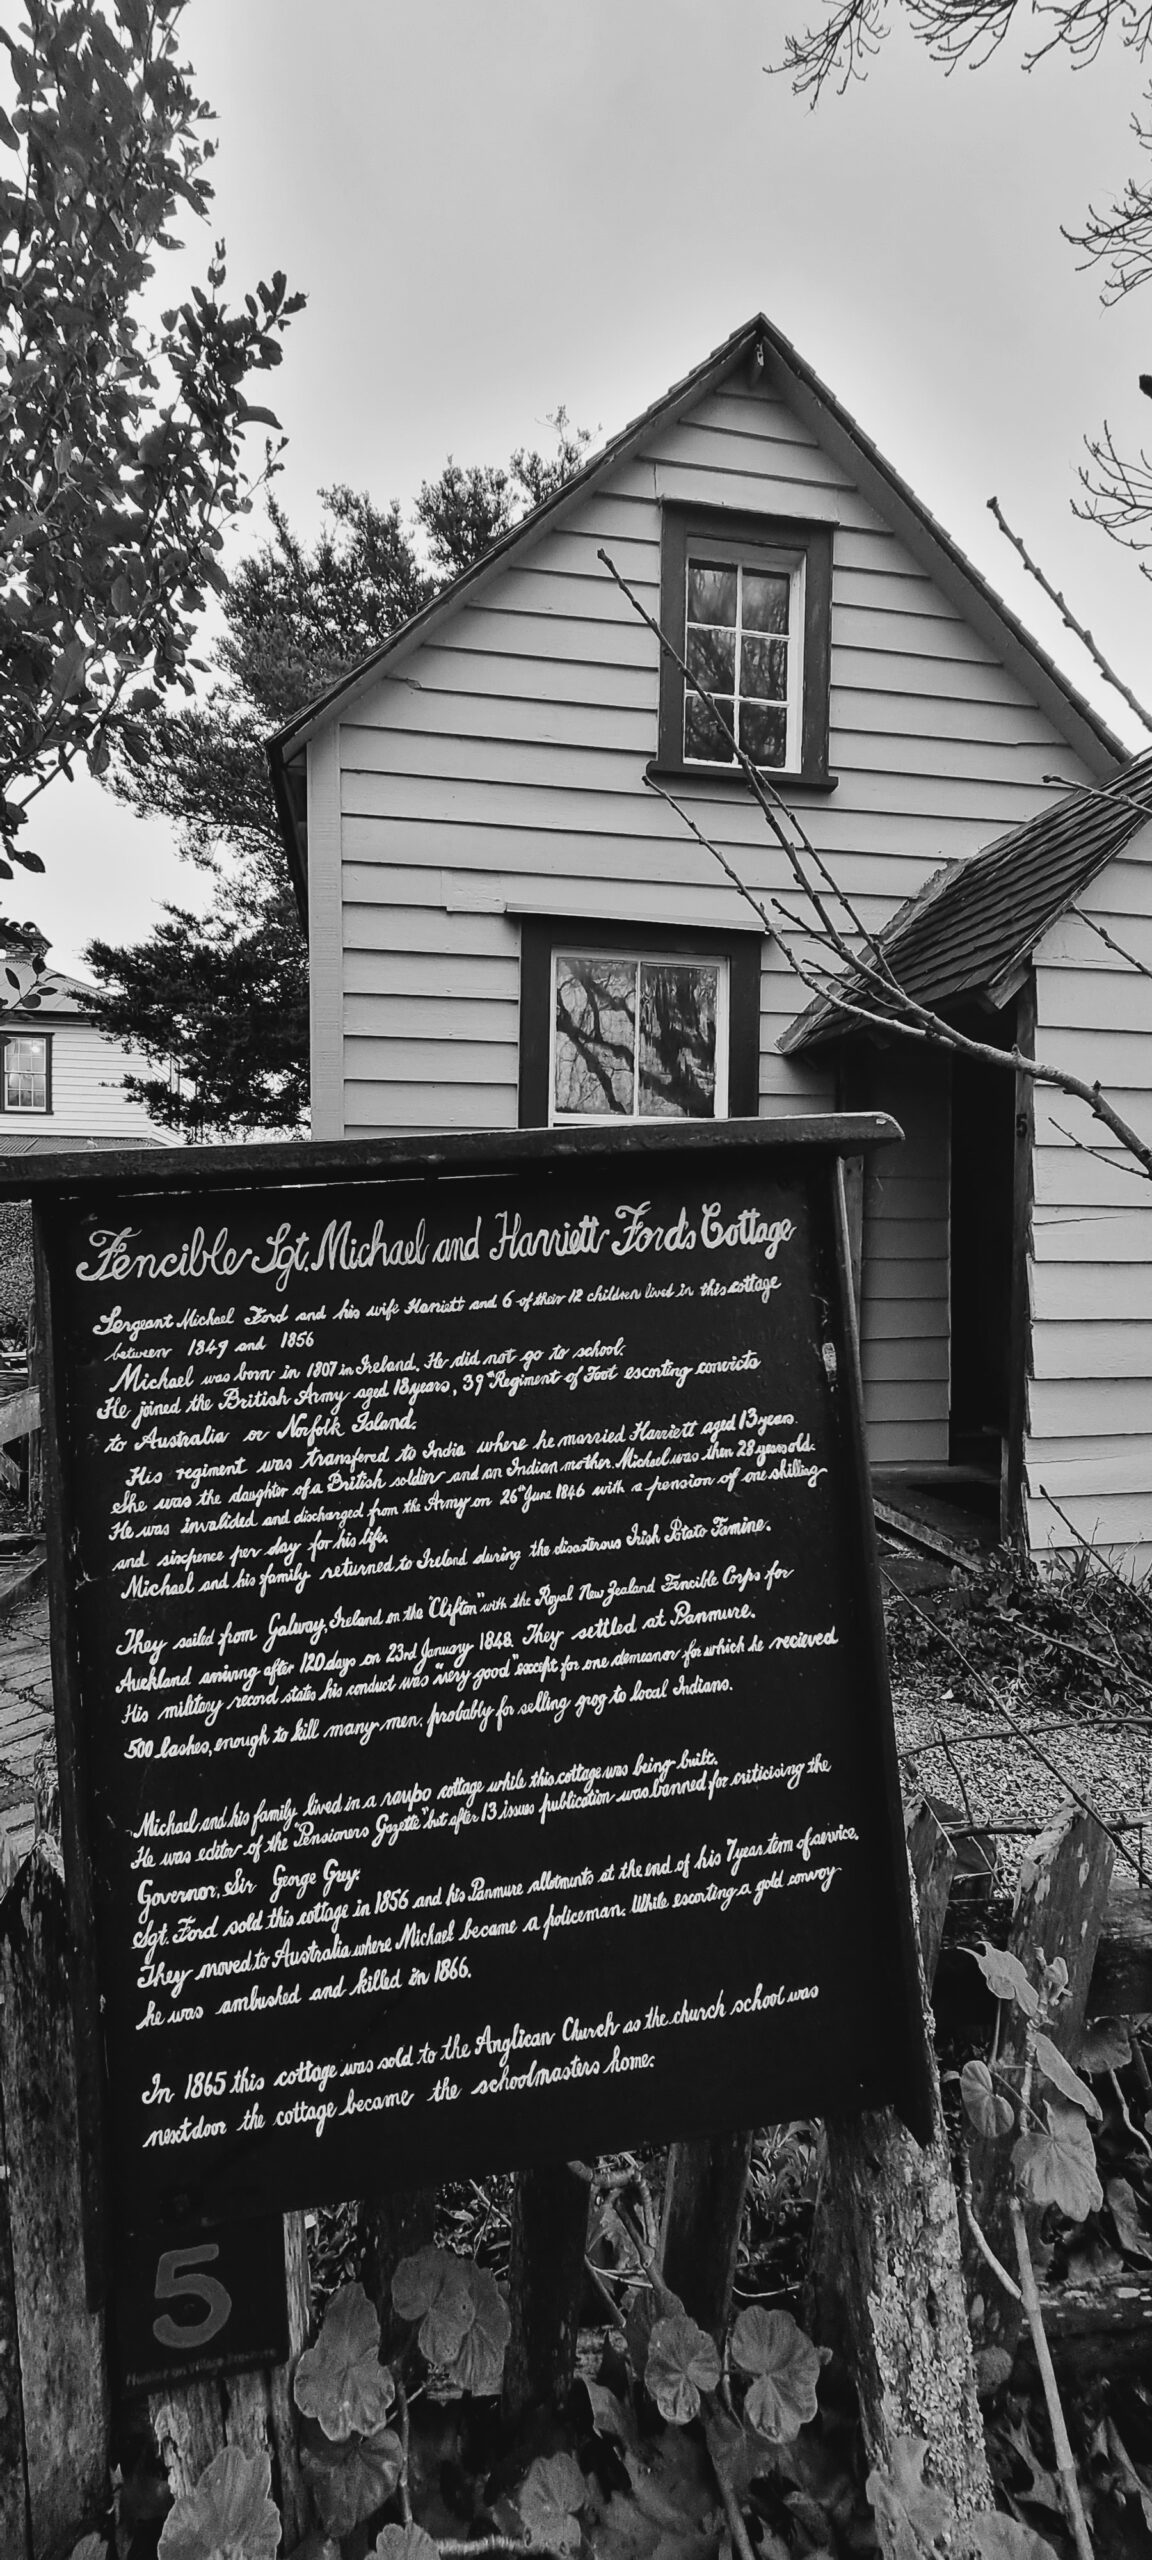 Fencible Sgt. Michael and Harriett Fords Cottage
Sergeant Michael Ford and his wife Harriett and 6 of their 12 children lived in this cottage
between 1849 and 1856
Michael was born in 1807 in Ireland. He did not go to school.
He joined the British Army aged 18 years, 39th Regiment of Foot escorting convicts
to Australia or Norfolk Island.
His regiment was transfered to India where he married Harriett aged 13 years.
She was the daughter of a British soldier and an Indian mother. Michael was then 28 years old.
He was invalided and discharged from the Army on 26th June 1846 with a pension of one shilling
and sixpence per day for his life.
Michael and his family returned to Ireland during the disasterous Irish Potato Famine.
They sailed from Galway, Ireland on the "Clifton" with the Royal New Zealand Fencible Corps for
Auckland arriving after 120 days on 23rd January 1848. They settled at Panmure.
His military record states his conduct was "very good" except for one demeanor for which he recieved
500 lashes, enough to kill many men, probably for selling grog to local Indians.
Michael and his family lived in a raupo cottage while this cottage was being built.
He was editor of the "Pensioners Gazette" but after 13 issues publication was banned for criticising the
Governor, Sir George Grey.
Sgt. Ford sold this cottage in 1856 and his Panmure allotments at the end of his 7 year term of service.
They moved to Australia where Michael became a policeman. While escorting a gold convoy
he was ambushed and killed in 1866.
In 1865 this cottage was sold to the Anglican Church as the church school was
nextdoor the cottage became the schoolmasters home.
5